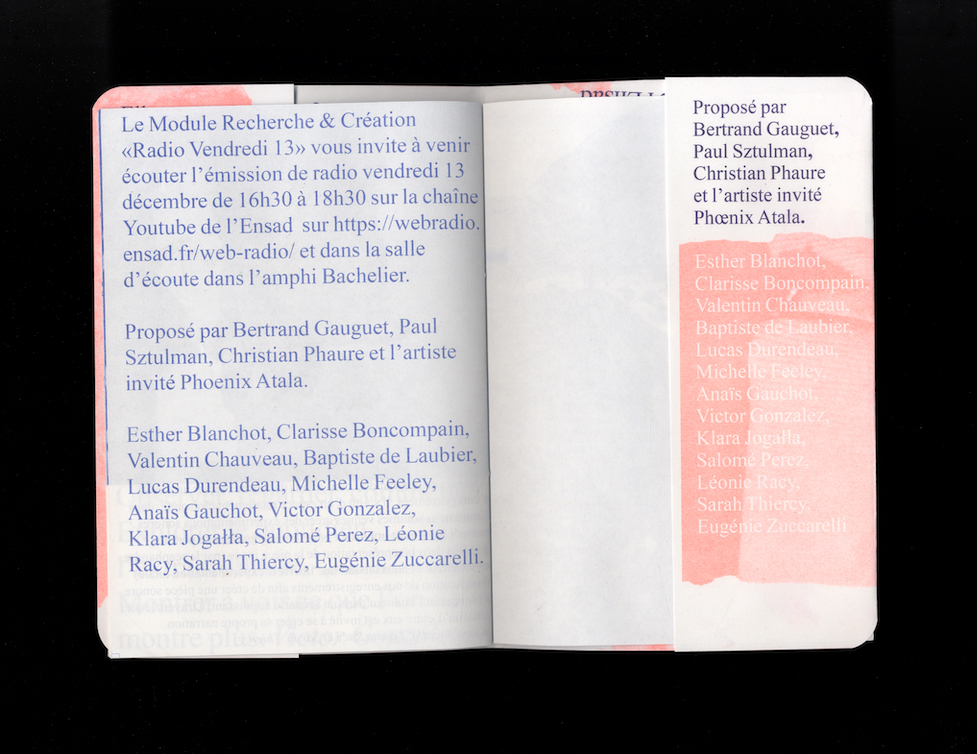 Le Module Recherche & Création
«Radio Vendredi 13» vous invite à venir
écouter l’émission de radio vendredi 13
décembre de 16h30 à 18h30 sur la chaîne
Youtube de l’Ensad sur https://webradio.
ensad.fr/web-radio/ et dans la salle
d’écoute dans l’amphi Bachelier.
Proposé par Bertrand Gauguet, Paul
Sztulman, Christian Phaure et l’artiste
invité Phoenix Atala.
Esther Blanchot, Clarisse Boncompain,
Valentin Chauveau, Baptiste de Laubier,
Lucas Durendeau, Michelle Feeley,
Anaïs Gauchot, Victor Gonzalez,
Klara Jogałła, Salomé Perez, Léonie
Racy, Sarah Thiercy, Eugénie Zuccarelli.
Proposé par
Bertrand Gauguet,
Paul Sztulman,
Christian Phaure
et l’artiste invité
Phœnix Atala.
Esther Blanchot,
Clarisse Boncompain,
Valentin Chauveau,
Baptiste de Laubier,
Lucas Durendeau,
Michelle Feeley,
Anaïs Gauchot,
Victor Gonzalez,
Klara Jogałła,
Salomé Perez,
Léonie Racy,
Sarah Thiercy,
Eugénie Zuccarelli